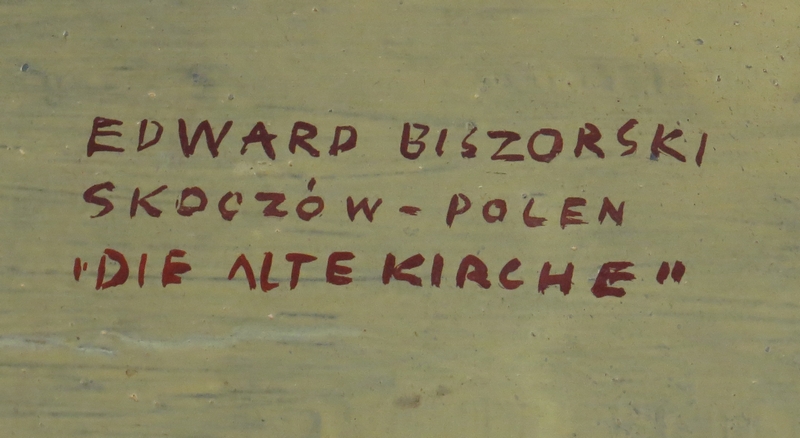 EDWARD BISZORSKI
SKOCZÓW - POLEN
"DIE ALTE KIRCHE"